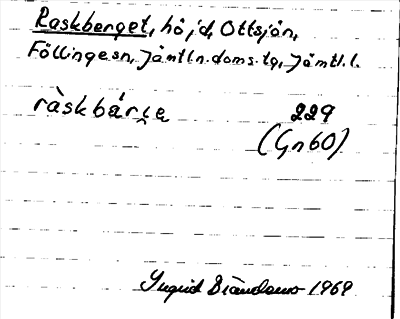 Raskberget, höjd, Ottsjön,
Föllinge sn, Jämtl.n.doms.tg, Jämtl.l.
ràskbár̯ɪa 229
(Gn 60)
Ingrid 1969